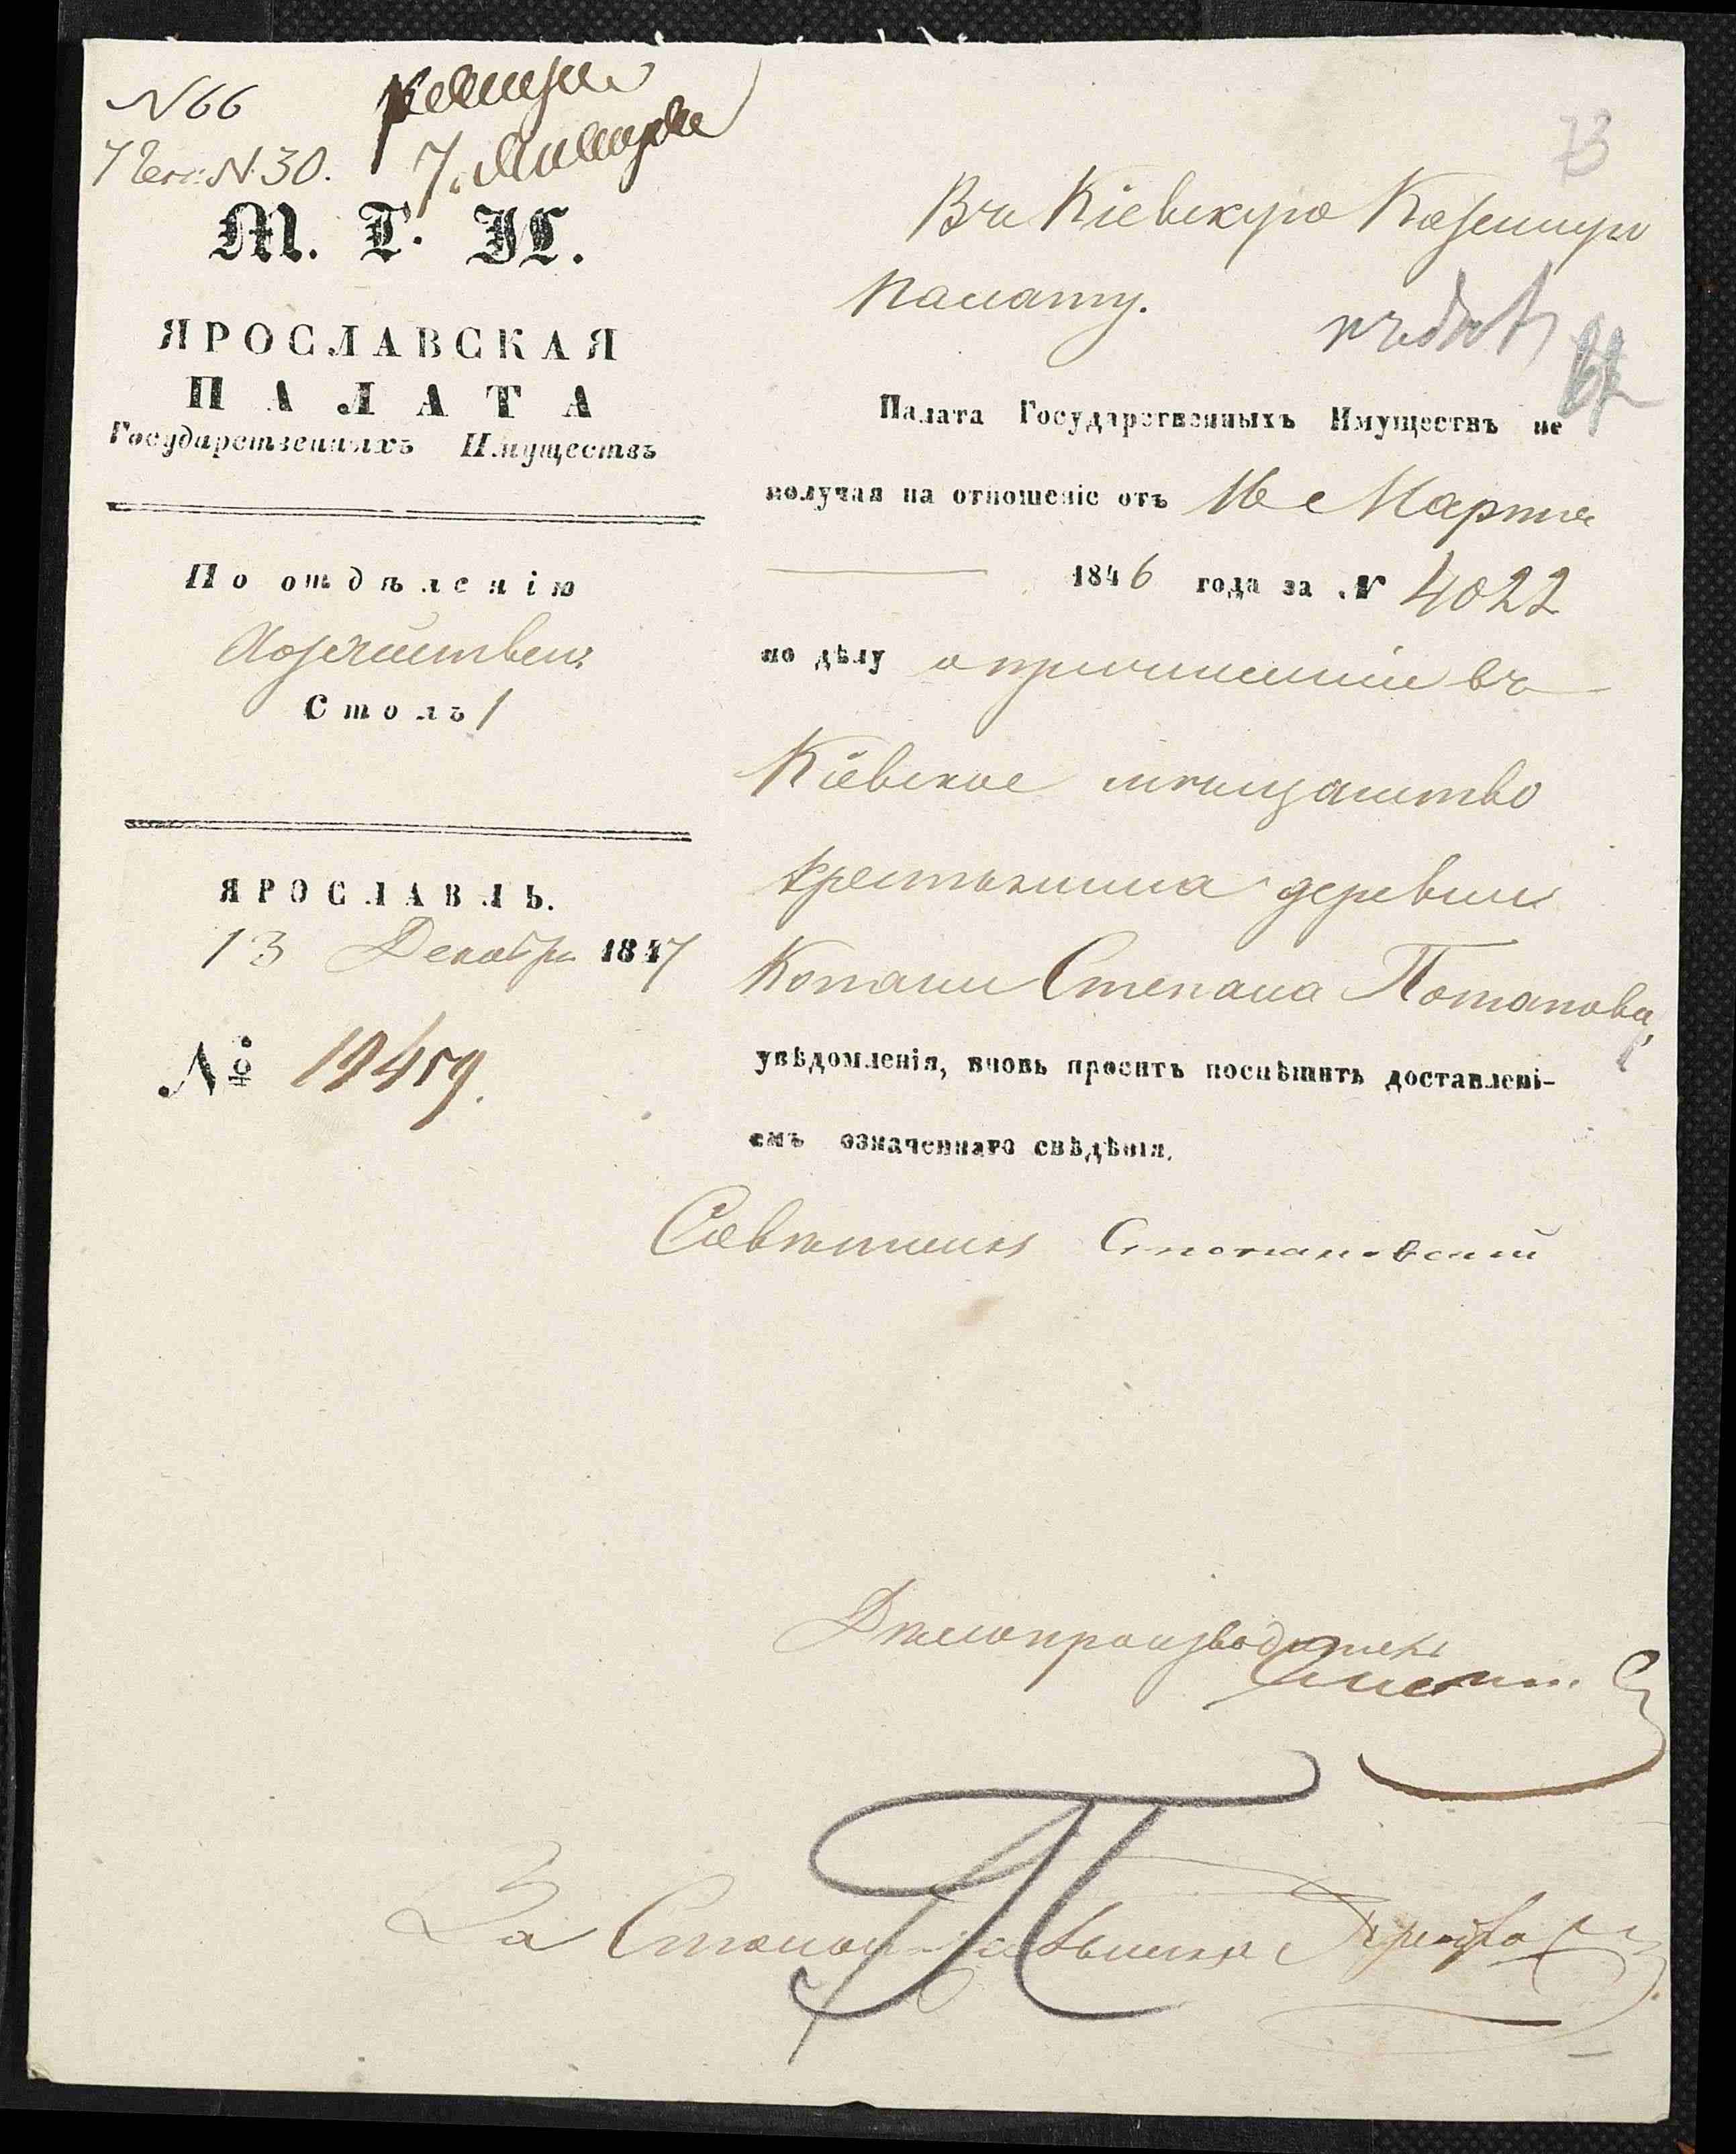 N 66
N. 30.
7. Января
М. Г. И.
ЯРОСЛАВСКАЯ
ПАЛАТА
Государственныхъ Имуществъ
По отдѣленію
Хозяйствен:
Столъ 1
ЯРОСЛАВЛЬ.
13 Декабря 1847
№ 19459.
73
Въ Кіевскую Казенную
Палату.
Палата Государственныхъ Имуществъ не
получая на отношеніе отъ 16 Марта
1846 года за № 4022
по дѣлу о причисленіи въ
Кіевское мѣщанство
крестьянина деревни
Степана Потапова,
увѣдомленія, вновь проситъ поспѣшить доставлені-
емъ означеннаго свѣдѣнія.
Совѣтникъ
Дѣлопроизводитель
За Столоначальника